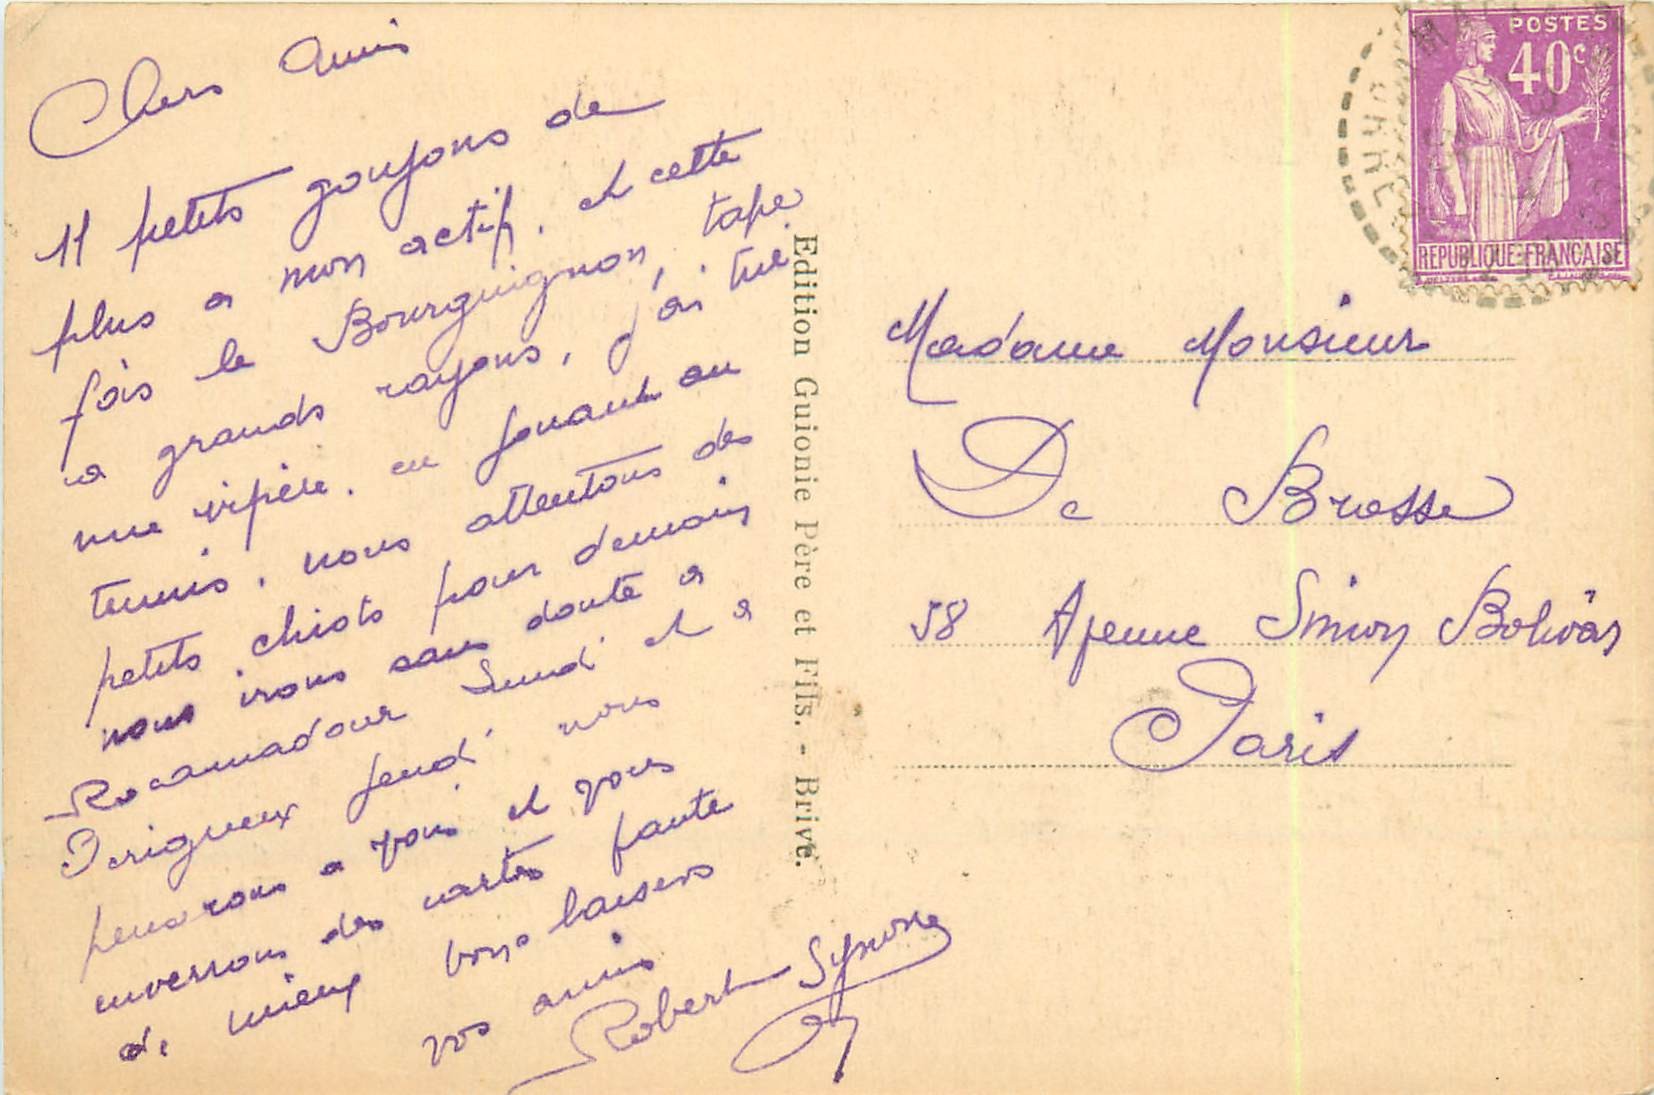 Chers Amis
11 petits goujons de
plus a mon actif, et cette
fois le Bourguignon, tape
a grands rayons, j'ai tué
une vipère. en jouant au
tennis. nous attentons des
petits chiots pour demain
nous irons sans doute a
Rocamadour Lundi et a
Perigueux jeudi nous
penserons a vous et vous
enverrons des cartes faute
de mieux bons baisers
vos amis
Robert Symone
Edition Guionie Père et Fils. - Brive.
POSTES
40c
REPUBLIQUE FRANÇAISE
Madame Monsieur
De Brosse
58 Avenue Simon Bolivar
Paris